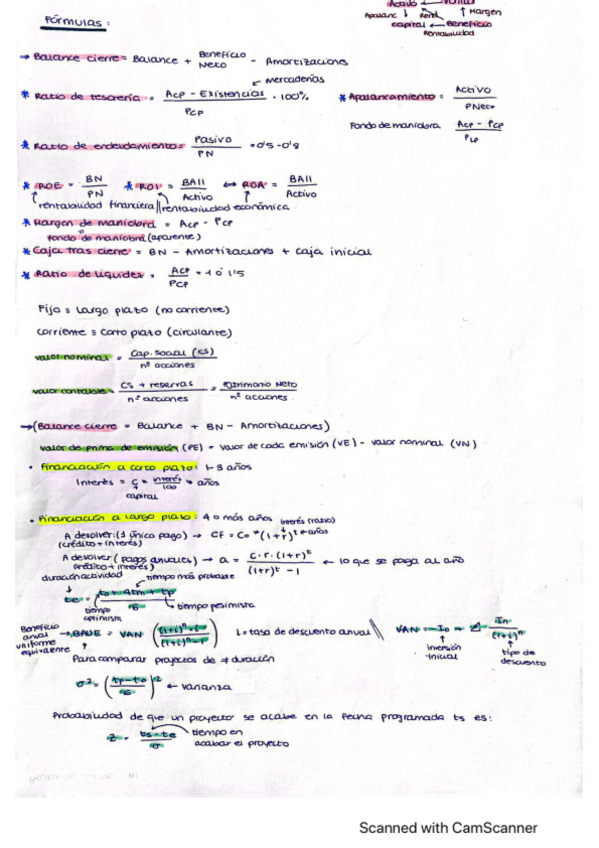 Activo ← Ventas
Apalanc ↓ Rend ↑ Margen
capital ← Beneficio
Rentabilidad
Fórmulas:
→ Balance cierre = Balance + Beneficio Neto - Amortizaciones
← mercaderías
* Ratio de tesorería = (Acp - Existencias) / Pcp · 100%
* Apalancamiento = Activo / PNeto
Fondo de maniobra (Acp - Pcp) / PLp
* Ratio de endeudamiento = Pasivo / PN = 0'5 - 0'8
* ROE = BN / PN * ROI = BAII / Activo ↔ ROA = BAII / Activo
rentabilidad financiera // rentabilidad económica
* Margen de maniobra = Acp - Pcp
fondo de maniobra (aparente)
* Caja tras cierre = BN - Amortizaciones + caja inicial
* Ratio de liquidez = Acp / Pcp = 1 ó 1'5
Fijo = Largo plazo (no corriente)
corriente = corto plazo (circulante)
valor nominal = Cap. Social (CS) / nº acciones
valor contable = (CS + reservas) / nº acciones = Patrimonio Neto / nº acciones
→ (Balance cierre = Balance + BN - Amortizaciones)
valor de prima de emisión (PE) = valor de cada emisión (VE) - valor nominal (VN)
• Financiación a corto plazo: 1-3 años
Interés = C * interés / 100 * años
capital
• Financiación a largo plazo: 4 o más años
interés (tasa)
A devolver: (1 único pago) → CF = Co * (1+r)^t ← años
(crédito + interés)
A devolver (pagos anuales) → a = C·r·(1+r)^t / ((1+r)^t - 1) ← lo que se paga al año
(crédito + interés)
duración actividad
tiempo más probable
te = (to + 4tm + tp) / 6
tiempo optimista
tiempo pesimista
Beneficio anual uniforme equivalente → BAUE = VAN ((1+i)^n · i / ((1+i)^n - 1)) i = tasa de descuento anual // VAN = -Io + Σ In / (1+i)^n
inversión inicial
tipo de descuento
Para comparar proyectos de ≠ duración
σ² = ((tp - to) / 6)² ← varianza
Probabilidad de que un proyecto se acabe en la fecha programada ts es:
Z = (ts - te) / σ
tiempo en acabar el proyecto
Scanned with CamScanner